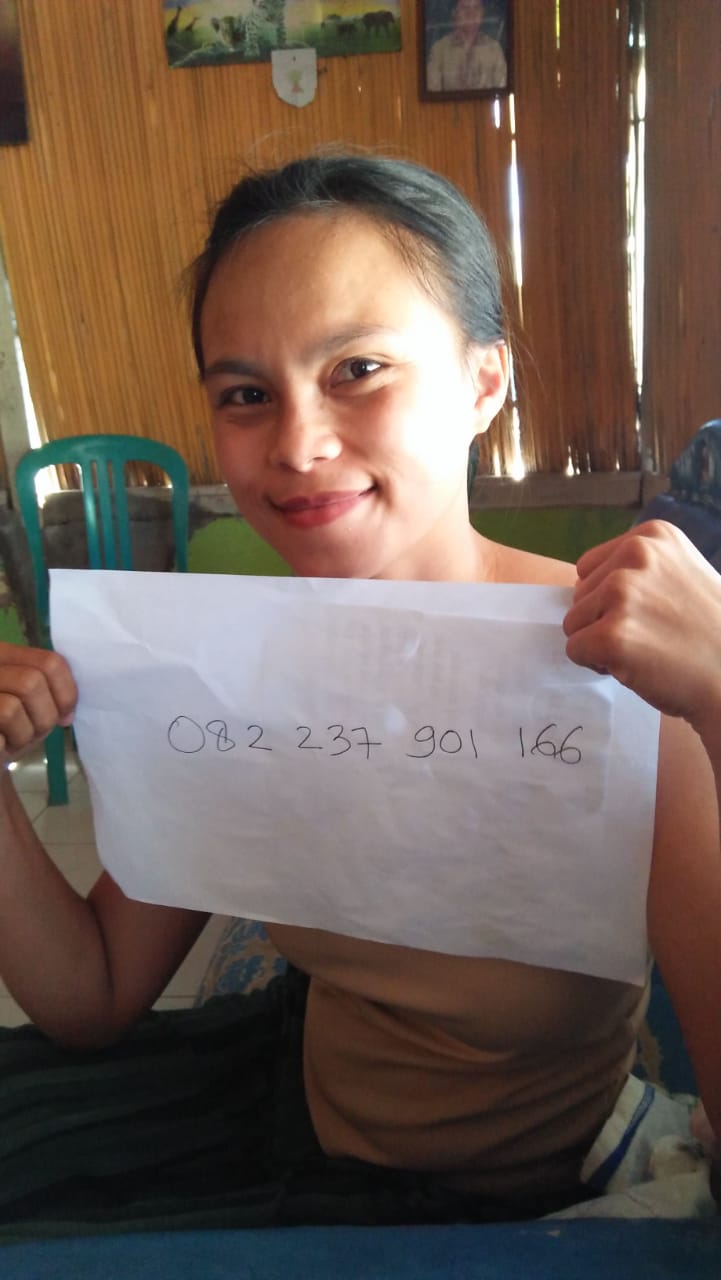 082 237 901 166